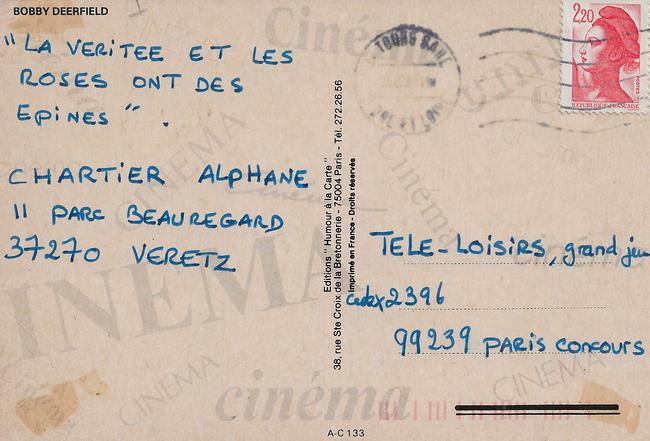 BOBBY DEERFIELD
"LA VERITEE ET LES
ROSES ONT DES
EPINES".
CHARTIER ALPHANE
11 PARC BEAUREGARD
37270 VERETZ
Editions " Humour à la Carte "
38, rue Ste Croix de la Bretonnerie - 75004 Paris - Tél. 272.26.56
Imprimé en France - Droits réservés
2,20
POSTES
REPUBLIQUE FRANÇAISE
TOURS GARE
TELE-LOISIRS, grand jeu
cedex 2396
99239 PARIS CONCOURS
Cinéma
CINEMA
Cinéma
CINEMA
CINEMA
CINEMA
cinéma
A-C 133